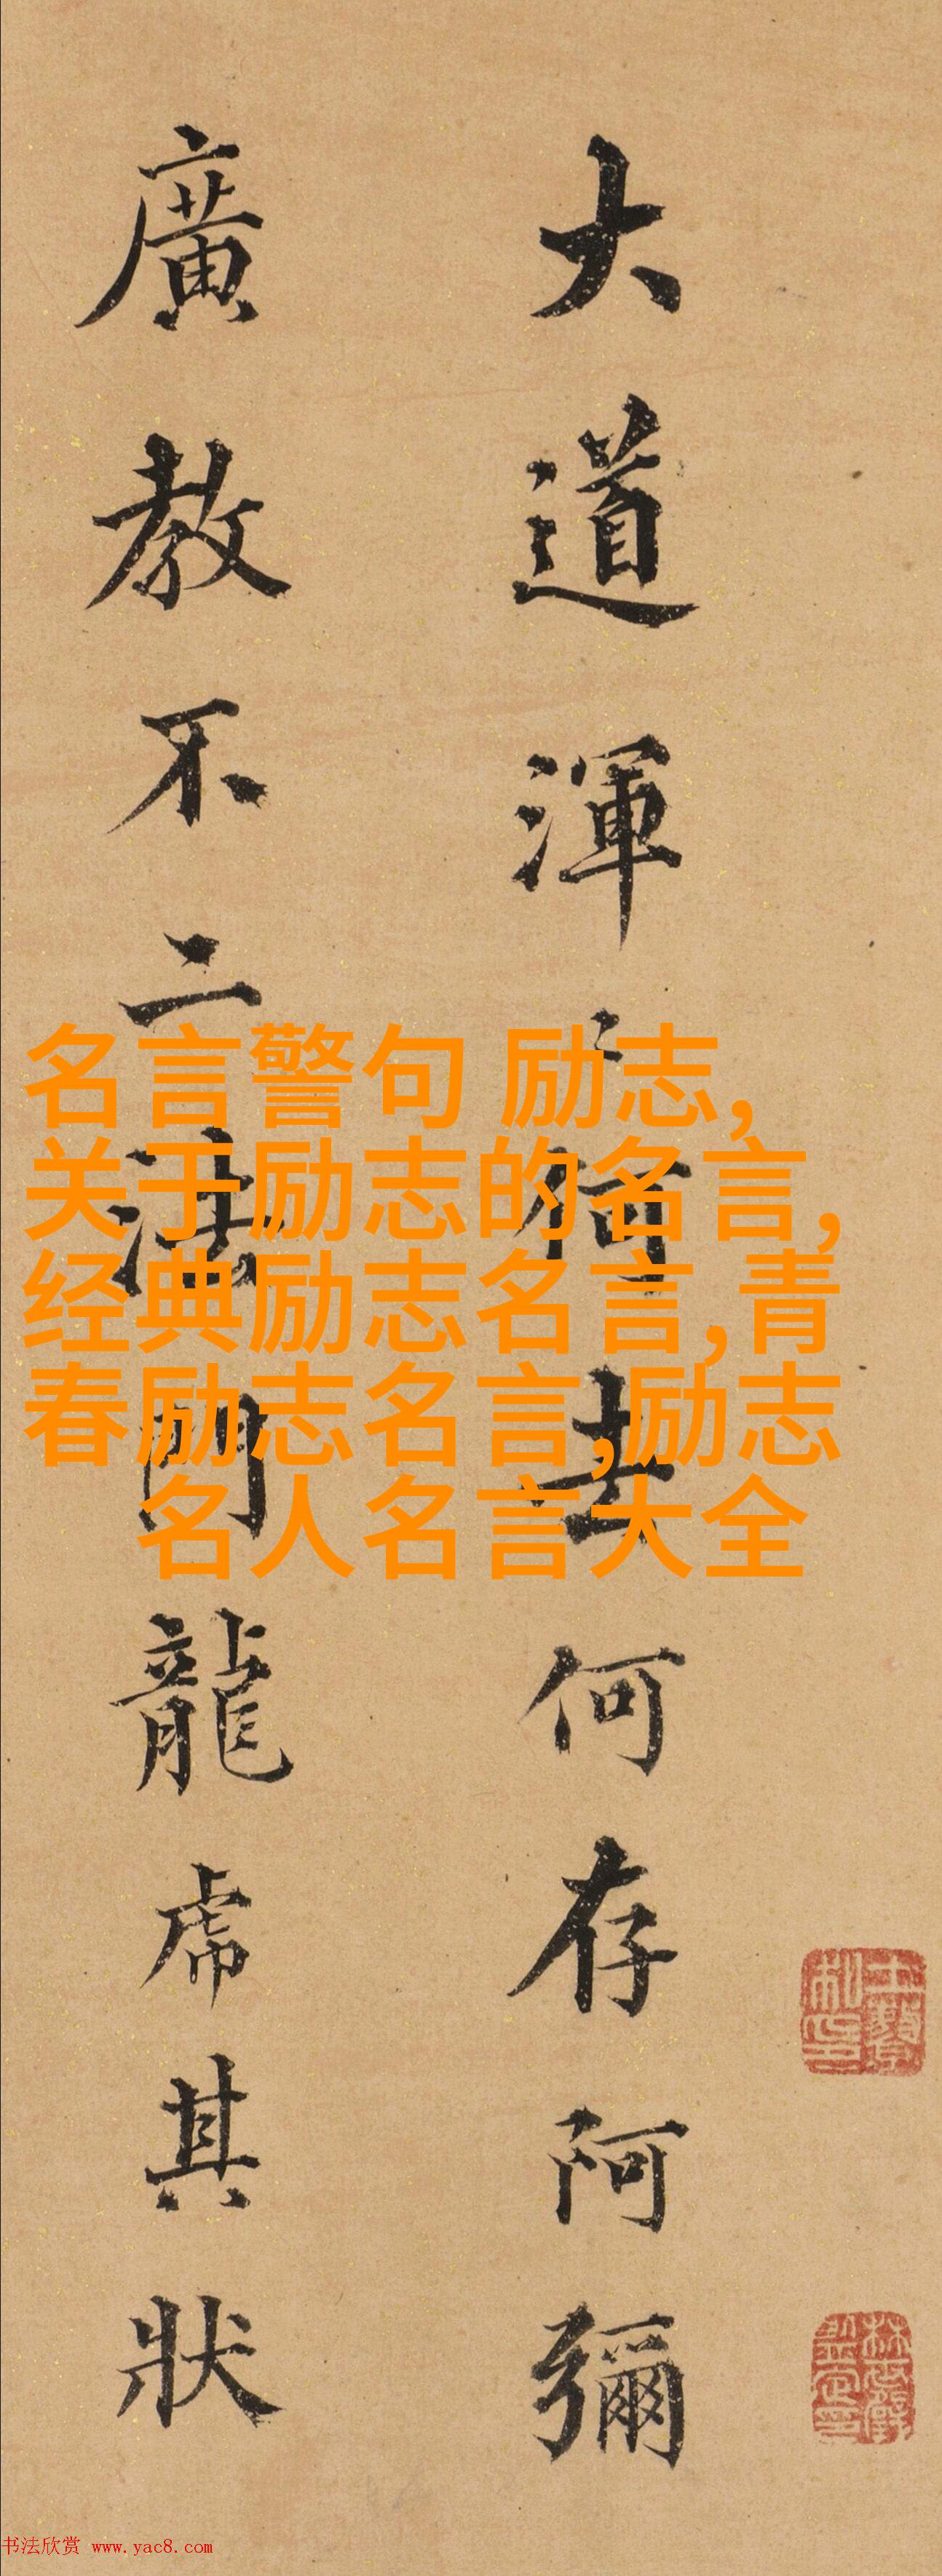 大道渾〻循其何存阿彌
廣教不二法門龍虎其狀
名言警句 励志,
关于励志的名言,
经典励志名言,青
春励志名言,励志
名人名言大全
书法欣赏 www.yac8.com